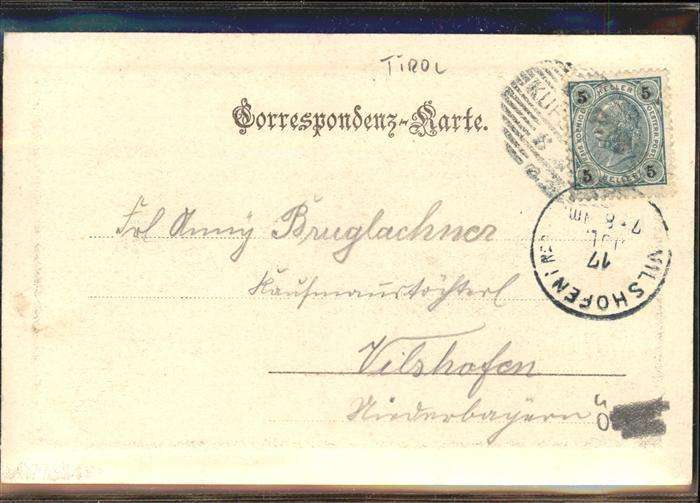 TIROL
Correspondenz-Karte.
KUFS
5 HELLER 5
5 HELLER 5
VILSHOFEN
17
JUL.
7-8
Frl Anny Bruglachner
Kaufmannstöchterl
Vilshofen
Niederbayern